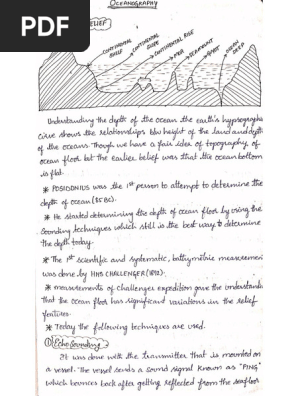 PDF
OCEANOGRAPHY
RELIEF
CONTINENTAL SHELF
CONTINENTAL SLOPE
CONTINENTAL RISE
MOR
SEAMOUNT
GUYOT
OCEANIC DEEP
Understanding the depth of the ocean the earth's hypsographic
curve shows the relationships b/w height of the land and depth
of the oceans. Though we have a fair idea of topography of
ocean floor but the earlier belief was that the ocean bottom
is flat.
* POSIDONIUS was the 1st person to attempt to determine the
depth of ocean (85BC).
* He started determining the depth of ocean floor by using the
sounding techniques which still is the best way to determine
the depth today.
* The 1st scientific and systematic, bathymetric measuremen
was done by HMS CHALLENGER (1872).
* measurements of challenger expedition gave the understandi
that the ocean floor has significant variations in the relief
features.
* Today the following techniques are used.
① Echo Sounding
It was done with the transmitter that is mounted on
a vessel. The vessel sends a sound signal known as "PING"
which bounces back after getting reflected from the seafloor